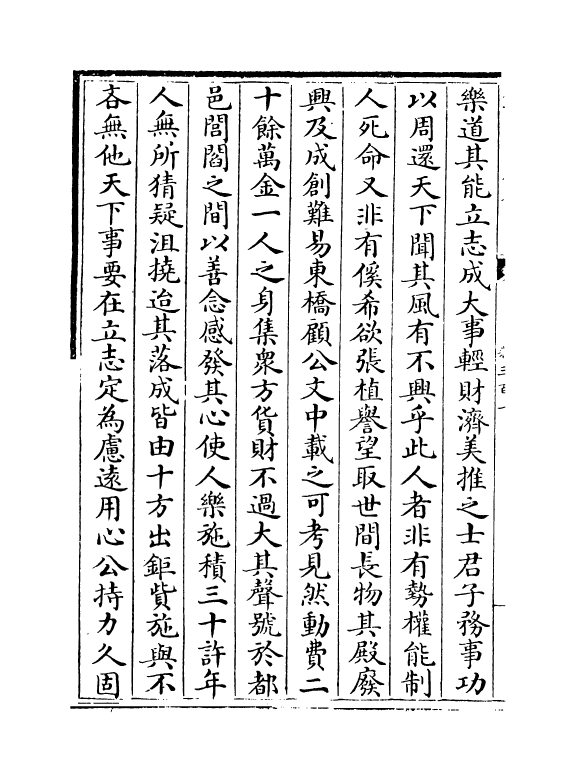 樂道其能立志成大事輕財濟美推之士君子務事功
以周還天下聞其風有不興乎此人者非有勢權能制
人死命又非有傒希欲張植譽望取世間長物其殿廢
興及成創難易東橋顧公文中載之可考見然動費二
十餘萬金一人之身集衆方貨財不過大其聲號於都
邑閭閻之間以善念感發其心使人樂施積三十許年
人無所猜疑沮撓迨其落成皆由十方出鉅貲施與不
吝無他天下事要在立志定為慮遠用心公持力久固